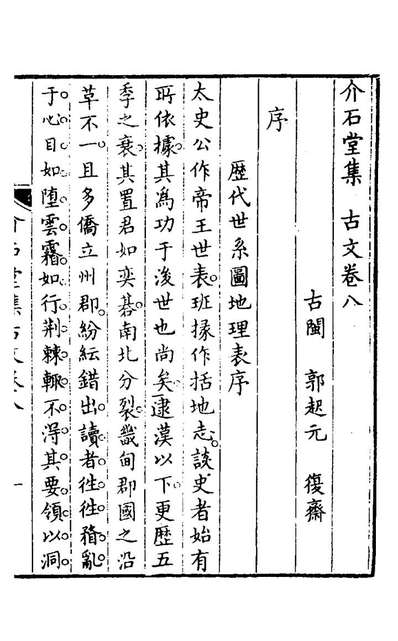 介石堂集 古文卷八
古閩 郭起元 復齋
序
歷代世系圖地理表序
太史公作帝王世表班掾作括地志談史者始有
所依據其爲功于後世也尚矣逮漢以下更歷五
季之衰其置君如奕碁南北分裂畿甸郡國之沿
草不一且多僑立州郡紛紜錯出讀者徃徃瞀亂
于心目如墮雲霧如行荆棘輙不淂其要領以洞
介石堂集古文卷八 一